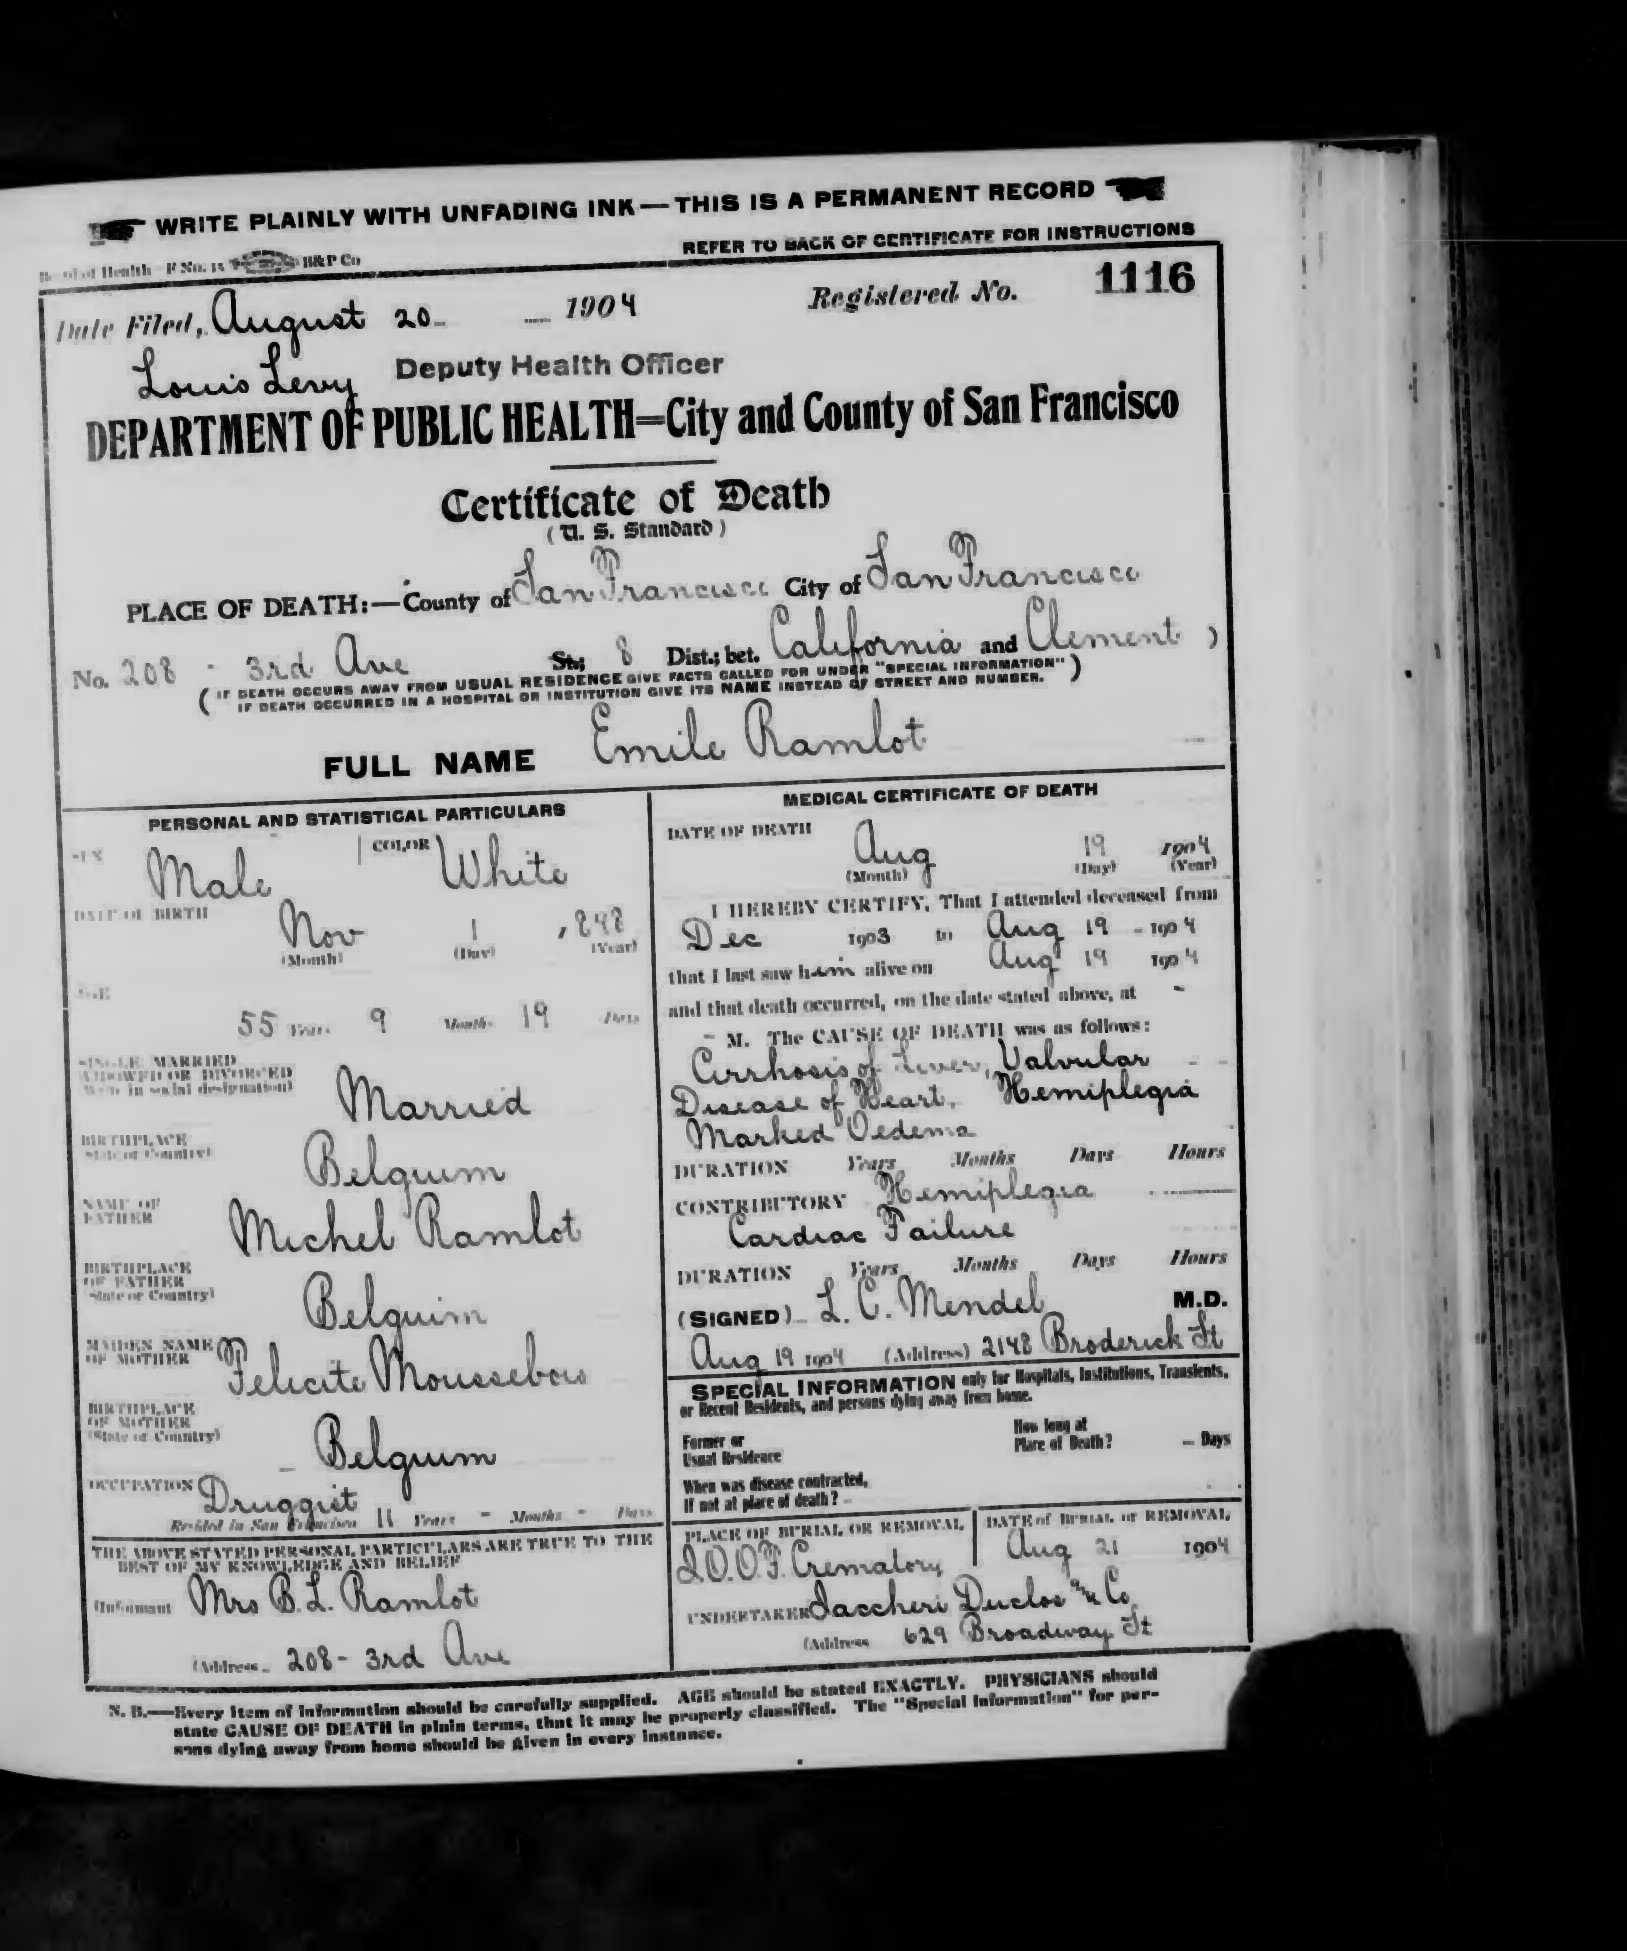 WRITE PLAINLY WITH UNFADING INK—THIS IS A PERMANENT RECORD
REFER TO BACK OF CERTIFICATE FOR INSTRUCTIONS
Board of Health—F No. 15 B&P Co
Date Filed, August 20 1904 Registered No. 1116
Louis Levy Deputy Health Officer
DEPARTMENT OF PUBLIC HEALTH=City and County of San Francisco
Certificate of Death
(U. S. Standard)
PLACE OF DEATH:—County of San Francisco City of San Francisco
No. 208 - 3rd Ave St.; 8 Dist.; bet. California and Clement )
( IF DEATH OCCURS AWAY FROM USUAL RESIDENCE GIVE FACTS CALLED FOR UNDER "SPECIAL INFORMATION" )
IF DEATH OCCURRED IN A HOSPITAL OR INSTITUTION GIVE ITS NAME INSTEAD OF STREET AND NUMBER.
FULL NAME Emile Ramlot
PERSONAL AND STATISTICAL PARTICULARS
SEX Male COLOR White
DATE OF BIRTH Nov 1 1848
(Month) (Day) (Year)
AGE
55 Years 9 Months 19 Days
SINGLE, MARRIED
WIDOWED OR DIVORCED
(Write in social designation)
Married
BIRTHPLACE
(State or Country)
Belguim
NAME OF
FATHER
Michel Ramlot
BIRTHPLACE
OF FATHER
(State or Country)
Belguim
MAIDEN NAME
OF MOTHER
Felicite Moussebois
BIRTHPLACE
OF MOTHER
(State or Country)
Belguim
OCCUPATION Druggist
Resided in San Francisco 11 Years - Months - Days
THE ABOVE STATED PERSONAL PARTICULARS ARE TRUE TO THE
BEST OF MY KNOWLEDGE AND BELIEF
(Informant Mrs B. L. Ramlot
(Address 208- 3rd Ave
MEDICAL CERTIFICATE OF DEATH
DATE OF DEATH
Aug 19 1904
(Month) (Day) (Year)
I HEREBY CERTIFY, That I attended deceased from
Dec 1903 to Aug 19 - 1904
that I last saw him alive on Aug 19 1904
and that death occurred, on the date stated above, at -
- M. The CAUSE OF DEATH was as follows:
Cirrhosis of Liver, Valvular
Disease of Heart, Hemiplegia
Marked Oedema
DURATION Years Months Days Hours
CONTRIBUTORY Hemiplegia
Cardiac Failure
DURATION Years Months Days Hours
(SIGNED) L. C. Mendel M.D.
Aug 19 1904 (Address) 2148 Broderick St
SPECIAL INFORMATION only for Hospitals, Institutions, Transients,
or Recent Residents, and persons dying away from home.
Former or
Usual Residence
How long at
Place of Death? - Days
When was disease contracted,
If not at place of death?
PLACE OF BURIAL OR REMOVAL
I.O.O.F. Crematory
DATE of BURIAL or REMOVAL
Aug 21 1904
UNDERTAKER Iaccheri Duclos & Co.
(Address 629 Broadway St
N. B.—Every item of information should be carefully supplied. AGE should be stated EXACTLY. PHYSICIANS should
state CAUSE OF DEATH in plain terms, that it may be properly classified. The "Special Information" for per-
sons dying away from home should be given in every instance.